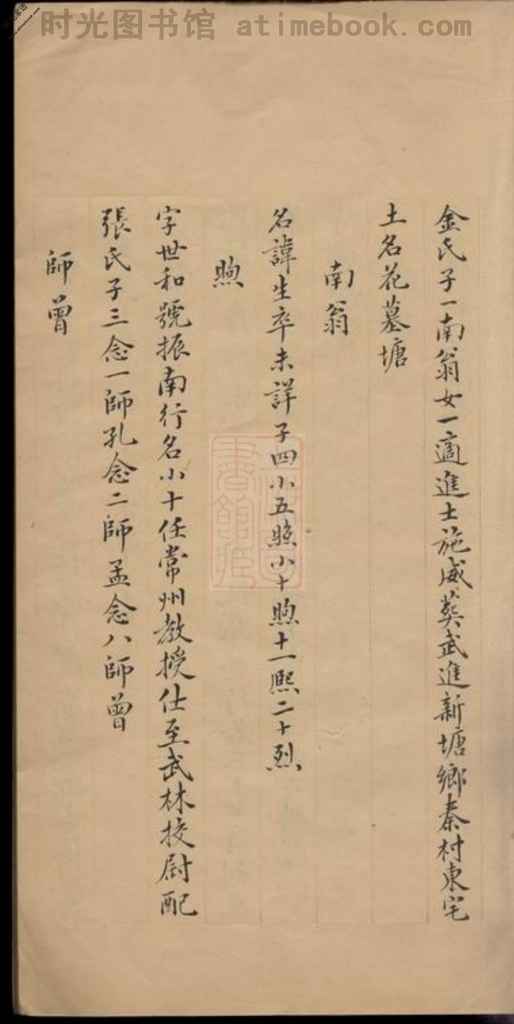 时光图书馆 atimebook.com
金氏子一南翁女一適進士施威葬武進新塘鄉秦村東宅
土名花墓塘
南翁
名諱生卒未詳子四小五照小十煦十一熙二十烈
煦
字世和號振南行名小十任常州教授仕至武林校尉配
張氏子三念一師孔念二師孟念八師曾
師曾